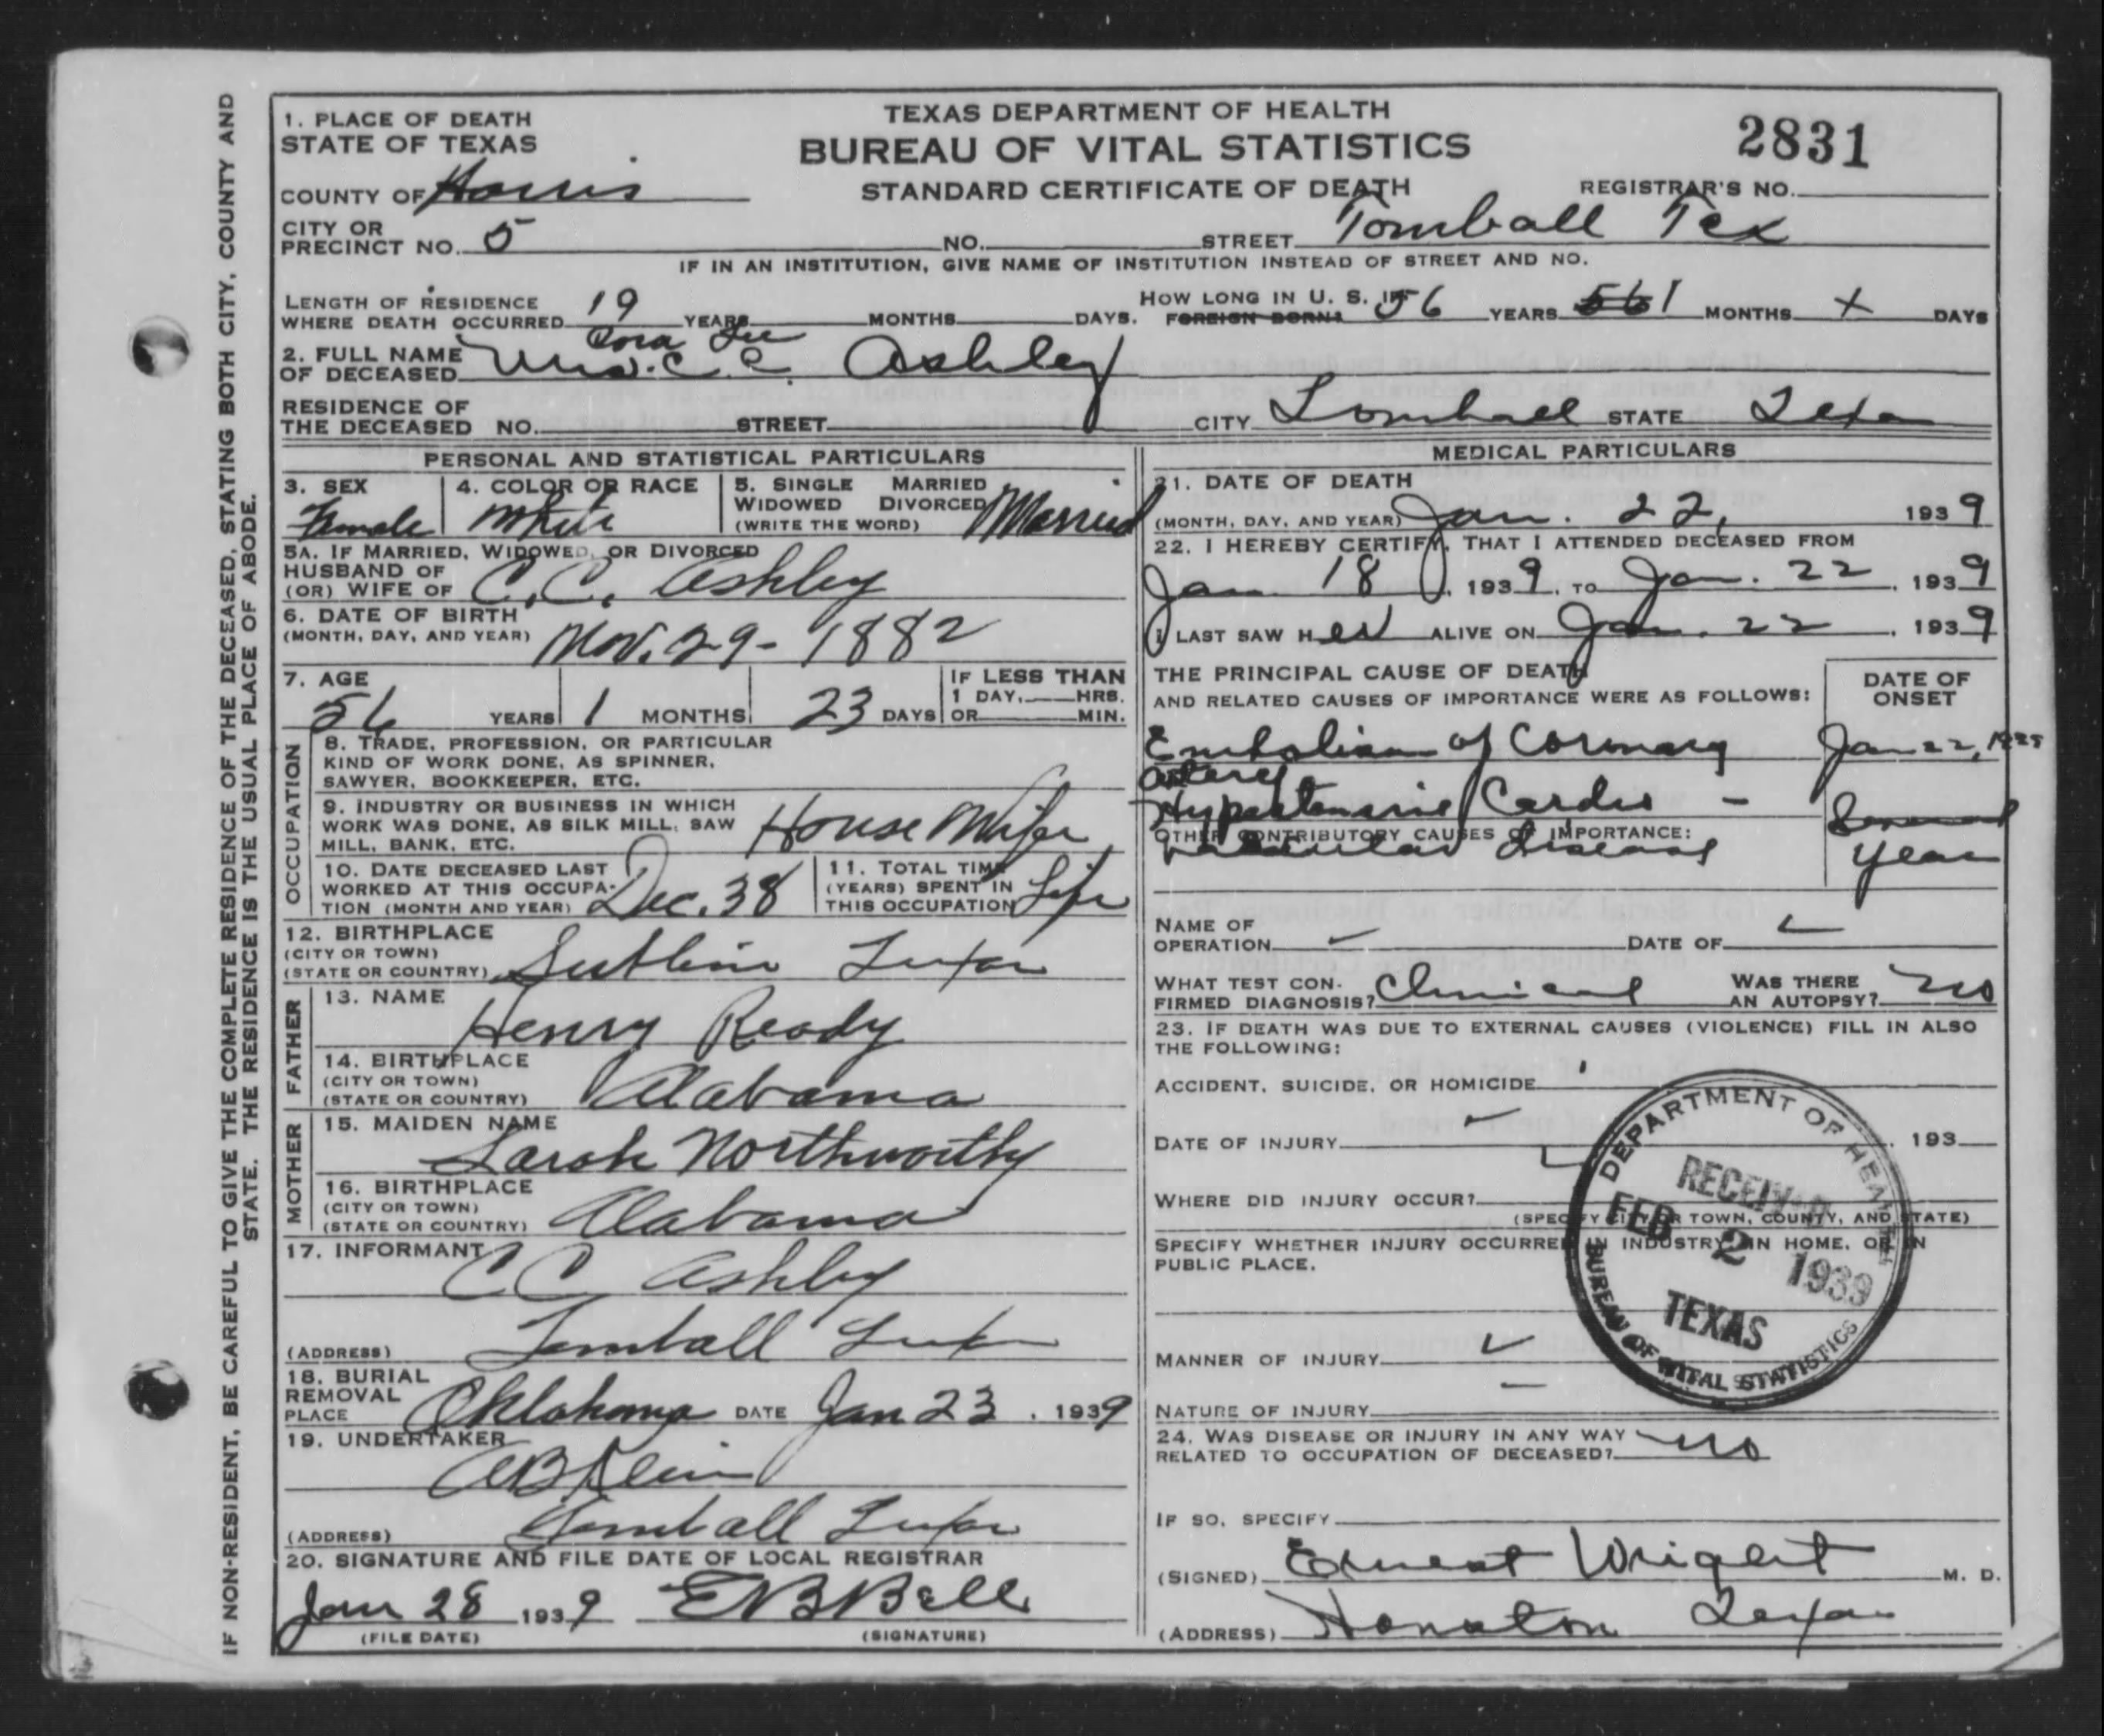 IF NON-RESIDENT, BE CAREFUL TO GIVE THE COMPLETE RESIDENCE OF THE DECEASED, STATING BOTH CITY, COUNTY AND
STATE. THE RESIDENCE IS THE USUAL PLACE OF ABODE.
1. PLACE OF DEATH
STATE OF TEXAS
TEXAS DEPARTMENT OF HEALTH
BUREAU OF VITAL STATISTICS
STANDARD CERTIFICATE OF DEATH
2831
REGISTRAR'S NO.
COUNTY OF Harris
CITY OR
PRECINCT NO. 5 NO. STREET Tomball Tex
IF IN AN INSTITUTION, GIVE NAME OF INSTITUTION INSTEAD OF STREET AND NO.
LENGTH OF RESIDENCE
WHERE DEATH OCCURRED 19 YEARS MONTHS DAYS.
HOW LONG IN U. S. IF
FOREIGN BORN? 56 YEARS 56 1 MONTHS X DAYS
Cora Lee
2. FULL NAME
OF DECEASED Mrs. C. C. Ashley
RESIDENCE OF
THE DECEASED NO. STREET CITY Tomball STATE Texa
PERSONAL AND STATISTICAL PARTICULARS
3. SEX Female
4. COLOR OR RACE White
5. SINGLE MARRIED
WIDOWED DIVORCED
(WRITE THE WORD) Married
5A. IF MARRIED, WIDOWED, OR DIVORCED
HUSBAND OF
(OR) WIFE OF C. C. Ashley
6. DATE OF BIRTH
(MONTH, DAY, AND YEAR) Nov. 29 - 1882
7. AGE
56 YEARS 1 MONTHS 23 DAYS
IF LESS THAN
1 DAY, HRS.
OR MIN.
OCCUPATION
8. TRADE, PROFESSION, OR PARTICULAR
KIND OF WORK DONE, AS SPINNER,
SAWYER, BOOKKEEPER, ETC.
9. INDUSTRY OR BUSINESS IN WHICH
WORK WAS DONE, AS SILK MILL, SAW
MILL, BANK, ETC. House Wife
10. DATE DECEASED LAST
WORKED AT THIS OCCUPA-
TION (MONTH AND YEAR) Dec. 38
11. TOTAL TIME
(YEARS) SPENT IN
THIS OCCUPATION Life
12. BIRTHPLACE
(CITY OR TOWN)
(STATE OR COUNTRY) Texas
FATHER
13. NAME
Henry Ready
14. BIRTHPLACE
(CITY OR TOWN)
(STATE OR COUNTRY) Alabama
MOTHER
15. MAIDEN NAME
Sarah Northworthy
16. BIRTHPLACE
(CITY OR TOWN)
(STATE OR COUNTRY) Alabama
17. INFORMANT
C C Ashley
(ADDRESS) Tomball Texas
18. BURIAL
REMOVAL
PLACE Oklahoma DATE Jan 23, 1939
19. UNDERTAKER
A B Klein
(ADDRESS) Tomball Texas
20. SIGNATURE AND FILE DATE OF LOCAL REGISTRAR
Jan 28 1939 E B Bell
(FILE DATE) (SIGNATURE)
MEDICAL PARTICULARS
21. DATE OF DEATH
(MONTH, DAY, AND YEAR) Jan. 22, 1939
22. I HEREBY CERTIFY, THAT I ATTENDED DECEASED FROM
Jan 18, 1939, TO Jan. 22, 1939
I LAST SAW HER ALIVE ON Jan. 22, 1939
THE PRINCIPAL CAUSE OF DEATH
AND RELATED CAUSES OF IMPORTANCE WERE AS FOLLOWS:
DATE OF
ONSET
Embolism of Coronary Jan 22,
artery
Hypertensive Cardio - Several
OTHER CONTRIBUTORY CAUSES OF IMPORTANCE:
Vascular disease year
NAME OF
OPERATION DATE OF
WHAT TEST CON-
FIRMED DIAGNOSIS? Clinical
WAS THERE
AN AUTOPSY? no
23. IF DEATH WAS DUE TO EXTERNAL CAUSES (VIOLENCE) FILL IN ALSO
THE FOLLOWING:
ACCIDENT, SUICIDE, OR HOMICIDE
DATE OF INJURY , 193
WHERE DID INJURY OCCUR?
(SPECIFY CITY OR TOWN, COUNTY, AND STATE)
SPECIFY WHETHER INJURY OCCURRED IN INDUSTRY, IN HOME, OR IN
PUBLIC PLACE.
DEPARTMENT OF HEALTH
RECEIVED
FEB 2 1939
TEXAS
BUREAU OF VITAL STATISTICS
MANNER OF INJURY
NATURE OF INJURY
24. WAS DISEASE OR INJURY IN ANY WAY
RELATED TO OCCUPATION OF DECEASED? no
IF SO, SPECIFY
(SIGNED) Ernest Wright M. D.
(ADDRESS) Houston Texas